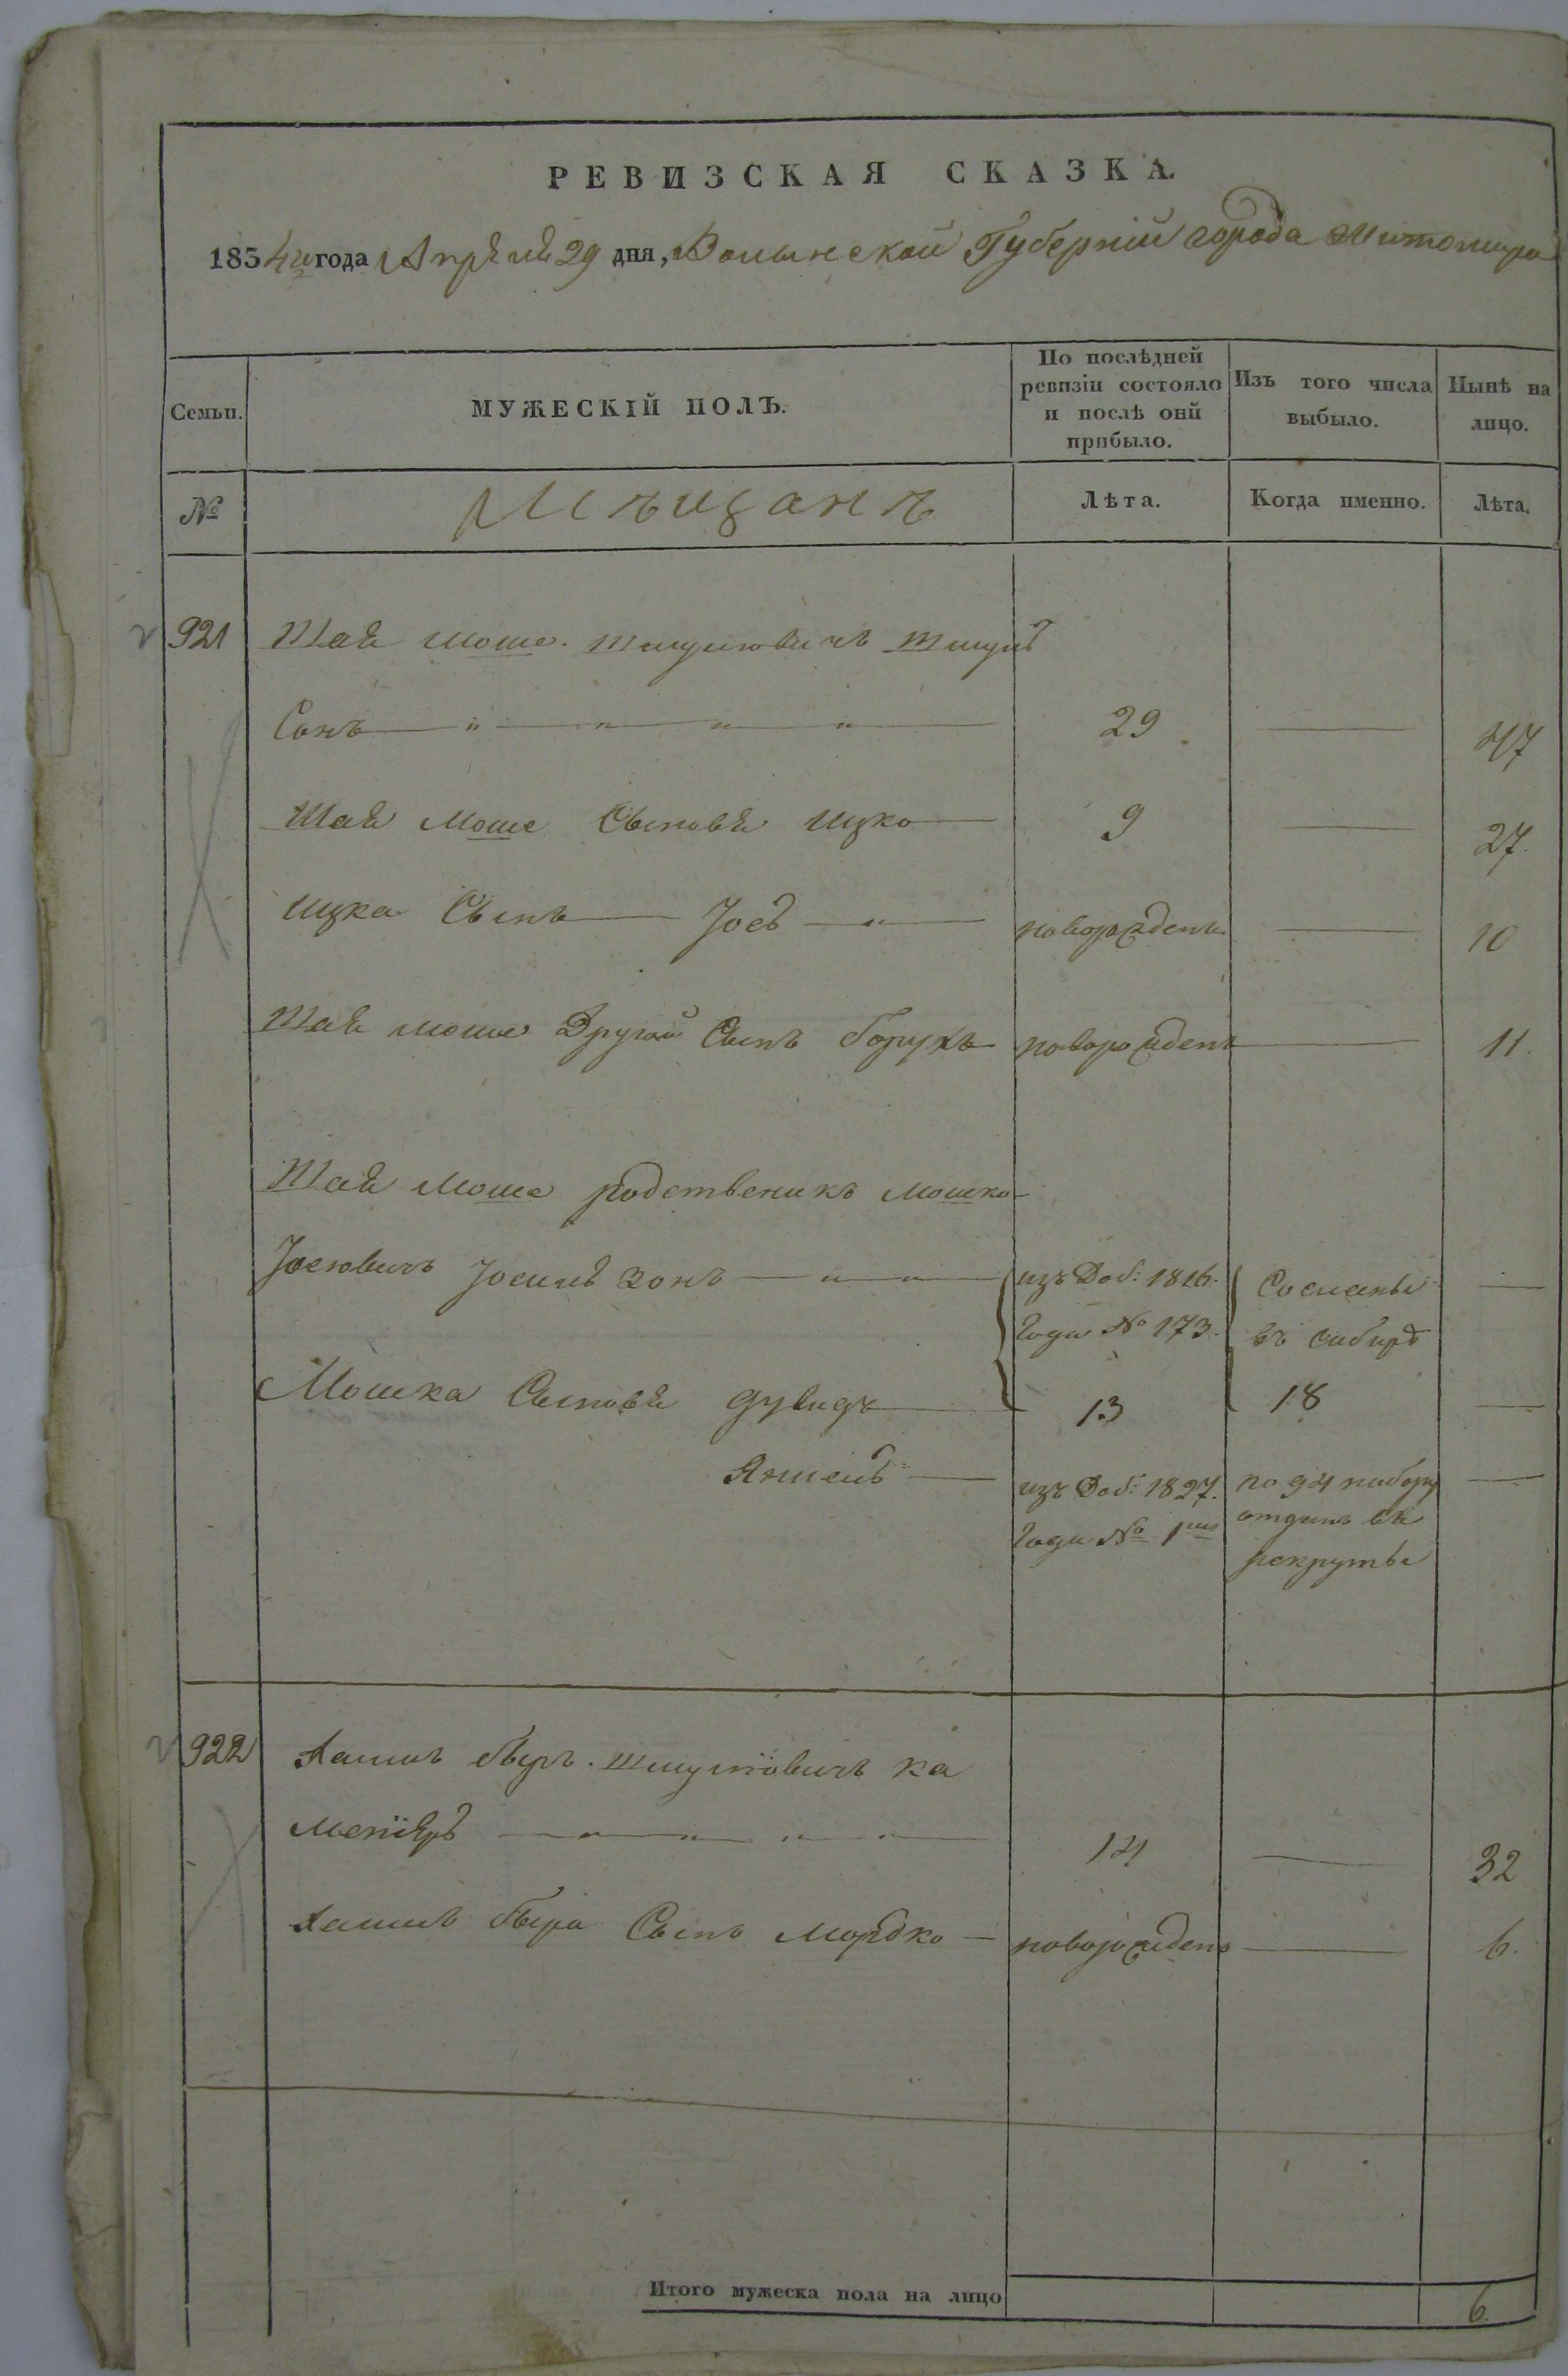 РЕВИЗСКАЯ СКАЗКА.
1834го года Апрѣля 29 дня, Волынской Губерніи города Житомира
Семьи.
МУЖЕСКІЙ ПОЛЪ.
По послѣдней ревизіи состояло и послѣ онй прибыло.
Изъ того числа выбыло.
Нынѣ на лицо.
№
Мѣщанъ
Лѣта.
Когда именно.
Лѣта.
921 Шая Моше. Шмулювичъ Шмуль
Сонъ 29 47
Шая Моше Сыновья Ицко 9 27.
Ицка Сынъ Іось новорожденъ 10
Шая Моше Другой Сынъ Борухъ новорожденъ 11.
Шая Моше родственикъ Мошко
Іосювичъ Іосиль зонъ изъ Доб: 1816. Сосланы
Года № 173. въ сибирь
Мошка Сыновья Дувидъ 13 18
Аншель изъ Доб: 1827. по 94 набору
Года № 1 отданъ въ
рекруты
922 Хаимъ Беръ. Шмулiовичъ Ка
менiяръ 14 32
Хаимъ Бера Сынъ Мордко новорожденъ 6.
Итого мужеска пола на лицо 6.